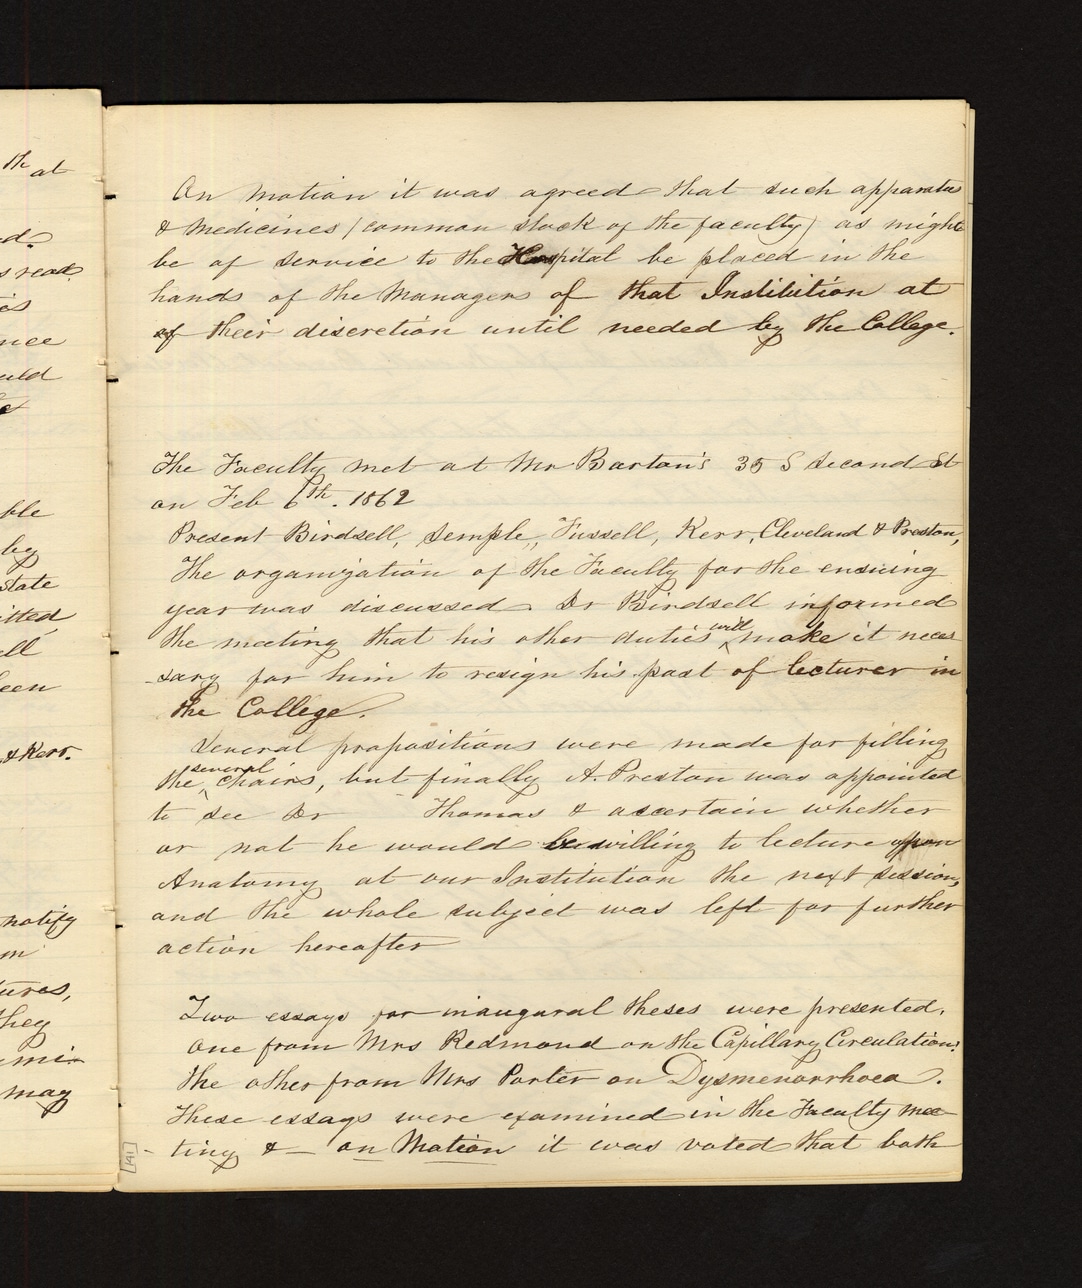 th at
d.
s read
is
nce
uld
ble
by
state
itted
ell
een
& Kerr.
notify
m
ures,
they
may
On motion it was agreed that such apparatus
& medicines (common stock of the faculty) as might
be of service to the Hospital be placed in the
hands of the Managers of that Institution at
of their discretion until needed by the College.
The Faculty met at Mr Barton's 35 S Second St
on Feb 6th. 1862
Present Birdsell, Semple, Fussell, Kerr, Cleveland & Preston,
The organization of the Faculty for the ensuing
year was discussed Dr Birdsell informed
the meeting that his other duties will make it neces
-sary for him to resign his post of lecturer in
the College.
Several propositions were made for filling
the several chairs, but finally A. Preston was appointed
to see Dr Thomas & ascertain whether
or not he would be willing to lecture upon
Anatomy at our Institution the next session,
and the whole subject was left for further
action hereafter
Two essays for inaugural theses were presented.
One from Mrs Redmond on the Capillary Circulation.
the other from Mrs Porter on Dysmenorrhoea.
These essays were examined in the Faculty mee
-ting & — on motion it was voted that both
141